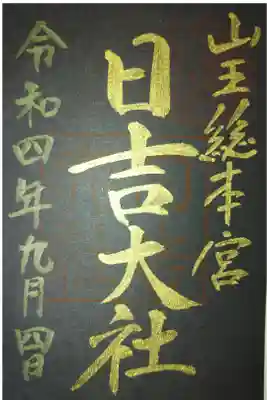 山王総本宮
日吉大社
令和四年九月四日